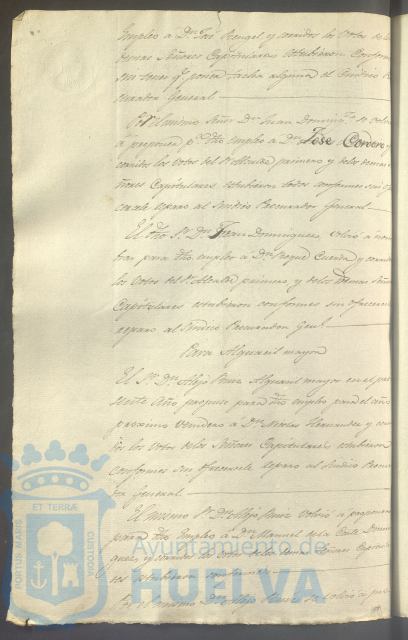 Empleo a Dn. José Rengel y corridos los Votos de los
demas Señores Capitulares estubieron Conformes
sin tener qe. poner tacha alguna el Sindico Pro
curador General
Por el mismo Señor Dn. Juan Domingz. se volvió
á proponer pa. dho empleo a Dn. José Cordero y
corridos los Votos del Sr. Alcalde primero y delos demas
Señores Capitulares estubieron todos conformes sin
reparo al Sindico Procurador General
El dho Sr. Dn. Juan Dominguez volvió a
para dho empleo a Dn. Roque Cuenda y corridos
los Votos del Sr. Alcalde primero y delos demas Señores
Capitulares estubieron conformes sin ofrecerse
reparo al Sindico Procurador Genl.
Para Alguacil mayor
El Sr. Dn. Alejo Ruiz Alguacil mayor en el pre
sente Año propuso para dho empleo para el año
proximo venidero á Dn. Nicolas Hernandez y corri
dos los Votos delos Señores Capitulares estubieron
conformes sin ofrecerle reparo al Sindico Procura
dor General.
El mismo Sr. Dn. Alejo Ruiz volvió a proponer
para dho Empleo a Dn. Manuel de la Corte Domin
guez, y corridos los Votos delos demas Señores Capitula
res estubieron conformes
Por el mismo Dn. Alejo Ruiz se volvió á pro
PORTUS MARIS
ET TERRÆ
CUSTODIA
Ayuntamiento de
HUELVA